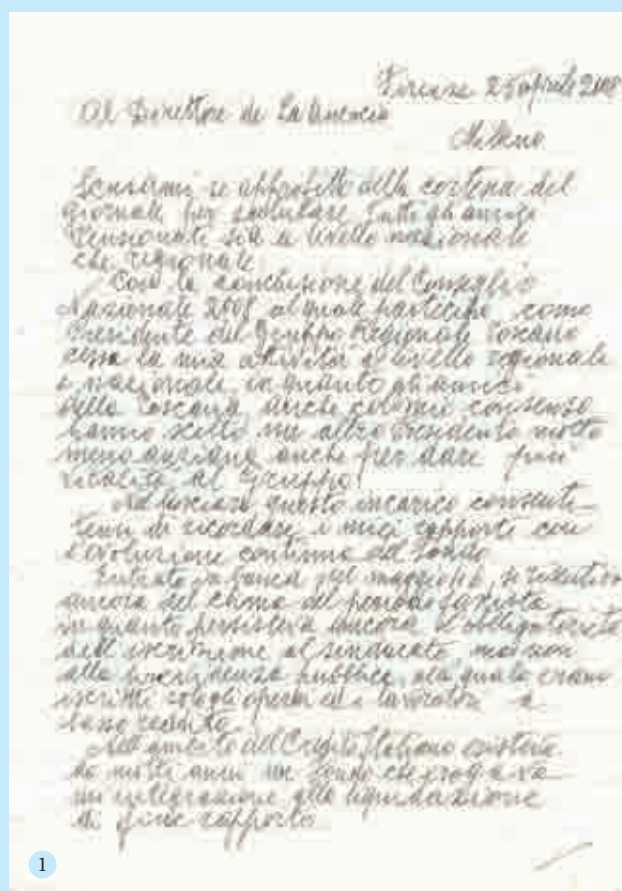 Firenze 25 aprile 2008
Al Direttore de La Quercia
Milano
Scusarmi se approfitto della cortesia del
giornale per salutare tutti gli amici
Pensionati sia a livello nazionale
che regionale
Con la conclusione del Consiglio
Nazionale 2008, al quale partecipo come
Presidente del Gruppo Regionale Toscano
cessa la mia attività a livello regionale
e nazionale in quanto gli amici
della Toscana, anche col mio consenso
hanno scelto un altro Presidente molto
meno anziano anche per dare più
vitalità al Gruppo
Nel lasciare questo incarico consenti-
temi di ricordare i miei rapporti con
l'evoluzione continua del Fondo
Entrato in banca nel maggio si sentiva
ancora del clima del periodo fascista
in quanto persisteva ancora l'obbligatorietà
dell'iscrizione al sindacato, ma non
alla previdenza pubblica, alla quale erano
iscritti solo gli operai ed i lavoratori a
basso reddito
Nell'ambito del Credito Italiano esisteva
da molti anni un Fondo che erogava
un'integrazione alla liquidazione
di fine rapporto
1